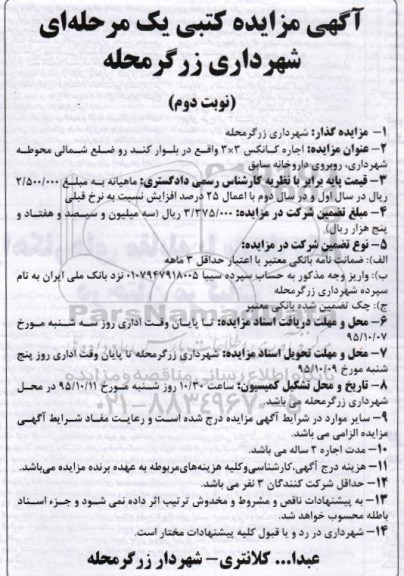 آگهی مزایده کتبی یک مرحله‌ای
شهرداری زرگرمحله
(نوبت دوم)
۱- مزایده گذار: شهرداری زرگرمحله
۲- عنوان مزایده: اجاره کانکس ۳×۳ واقع در بلوار کند رو ضلع شمالی محوطه
شهرداری، روبروی داروخانه سابق
۳- قیمت پایه برابر با نظریه کارشناس رسمی دادگستری: ماهیانه به مبلغ ۲/۵۰۰/۰۰۰
ریال در سال اول و در سال دوم با اعمال ۲۵ درصد افزایش نسبت به نرخ قبلی
۴- مبلغ تضمین شرکت در مزایده: ۳/۳۷۵/۰۰۰ ریال (سه میلیون و سیصد و هفتاد و
پنج هزار ریال)
۵- نوع تضمین شرکت در مزایده:
الف: ضمانت نامه بانکی معتبر با اعتبار حداقل ۳ ماهه
ب): واریز وجه مذکور به حساب سپرده سیبا ۰۱۰۷۹۴۷۹۱۸۰۰۵ نزد بانک ملی ایران به نام
سپرده شهرداری زرگرمحله
ج): چک تضمین شده بانکی معتبر
۶- محل و مهلت دریافت اسناد مزایده: تا پایان وقت اداری روز سه شنبه مورخ
۹۵/۱۰/۰۷
۷- محل و مهلت تحویل اسناد مزایده: شهرداری زرگرمحله تا پایان وقت اداری روز پنج
شنبه مورخ ۹۵/۱۰/۰۹
۸- تاریخ و محل تشکیل کمیسیون: ساعت ۱۰/۳۰ روز شنبه مورخ ۹۵/۱۰/۱۱ در محل
شهرداری زرگرمحله می باشد.
۹- سایر موارد در شرایط آگهی مزایده درج شده است و رعایت مفاد شرایط آگهی
مزایده الزامی می باشد.
۱۰- مدت اجاره ۲ ساله می باشد.
۱۱- هزینه درج آگهی، کارشناسی و کلیه هزینه‌های مربوطه به عهده برنده مزایده می‌باشد.
۱۲- حداقل شرکت کنندگان ۳ نفر می باشد.
۱۳- به پیشنهادات ناقص و مشروط و مخدوش ترتیب اثر داده نمی شود و جزء اسناد
باطله محسوب خواهد شد.
۱۴- شهرداری در رد و یا قبول کلیه پیشنهادات مختار است.
عبدا... کلانتری- شهردار زرگرمحله
ParsNamadData
۰۲۱-۸۸۳۴۹۶۷۰-۵